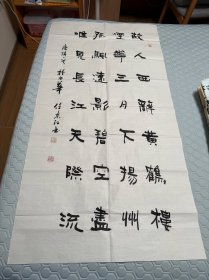 故人西辭黃鶴樓
煙華三月下揚州
孤帆遠影碧空盡
唯見長江天際流